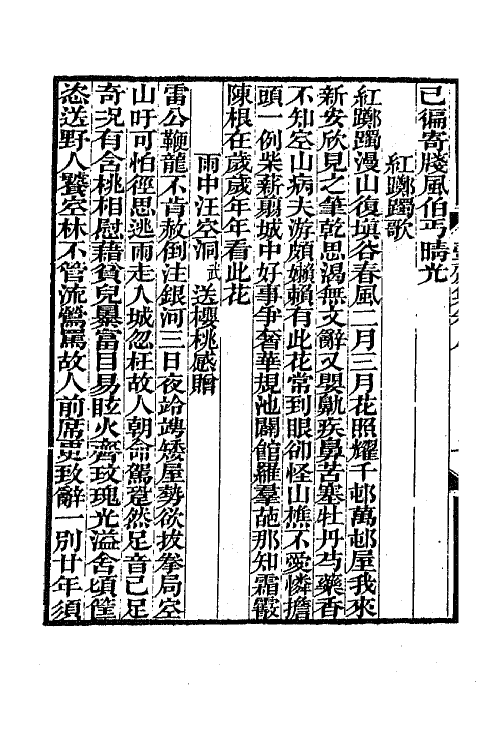 已徧寄牋風伯丐晴光
紅躑躅歌
紅躑躅漫山復塡谷春風二月三月花照耀千邨萬邨屋我來
新安欣見之筆乾思渴無文辭又嬰鼽疾鼻苦塞牡丹芍藥香
不知空山病夫游頗嬾賴有此花常到眼卻怪山樵不愛憐擔
頭一例柴薪翦城中好事爭奢華規池闢館羅羣葩那知霜霰
陳根在歲歲年年看此花
雨中汪空洞武送櫻桃感贈
雷公鞭龍不肯赦倒注銀河三日夜跉竮矮屋勢欲拔拳局空
山吁可怕徑思逃雨走入城忽枉故人朝命駕跫然足音已足
奇況有含桃相慰藉貧兒暴富目易眩火齊玫瑰光溢舍頃筐
恣送野人饕空林不管流鶯罵故人前席更致辭一別廿年須